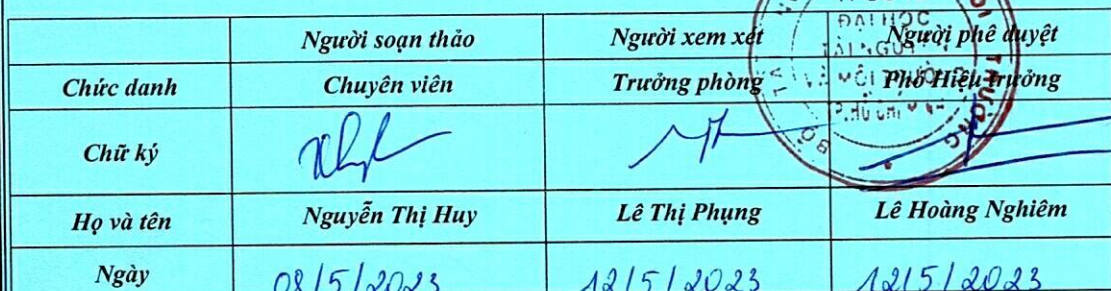 Người soạn thảo Người xem xét Người phê duyệt
Chức danh Chuyên viên Trưởng phòng Phó Hiệu trưởng
Chữ ký
Họ và tên Nguyễn Thị Huy Lê Thị Phụng Lê Hoàng Nghiêm
Ngày 08/5/2023 12/5/2023 12/5/2023
ĐẠI HỌC